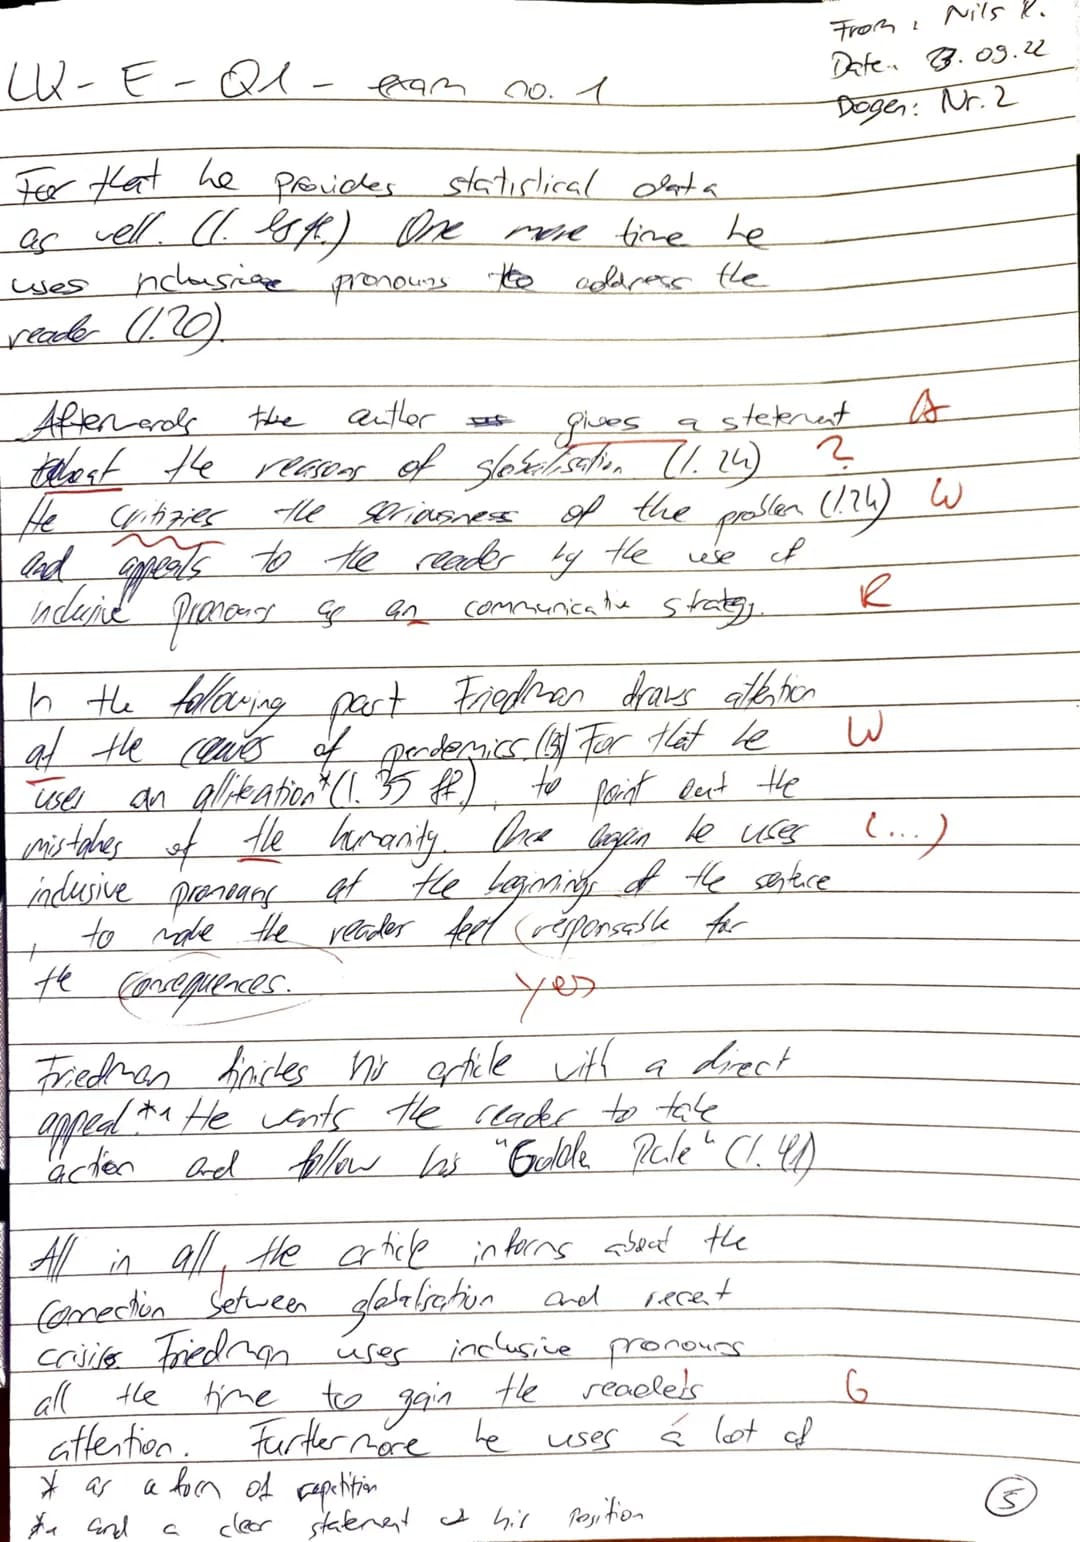 From: Nils K.
Date: 23.09.22
LK-E-Q1- exam no. 1
Bogen: Nr. 2
For that he provides statistical data
as well. (l. ff.) One more time he
uses nclusive pronouns to address the
reader (l.20).
Afterwards the author gives a statement A
about the reasons of globalisation (l. 24) ?
He critizies the seriousness of the problem (l.24) W
and appeals to the reader by the use of
inclusive pronouns as an communicative strategy. R
In the following part Friedman draws attention
at the causes of pandemics. For that he W
uses an alliteration* (l. 35 ff.), to point out the
mistakes of the humanity. Once again he uses (...)
inclusive pronouns at the beginnings of the sentence
, to make the reader feel responsable for
the consequences. yes
Friedman finishes his article with a direct
appeal.*1 He wants the reader to take
action and follow his "Golden Rule" (l. 41)
All in all, the article informs about the
connection between globalisation and recent
crisis. Friedman uses inclusive pronouns
all the time to gain the reader's G
attention. Furthermore he uses a lot of
* as a form of repetition
*1 and a clear statement of his position
5